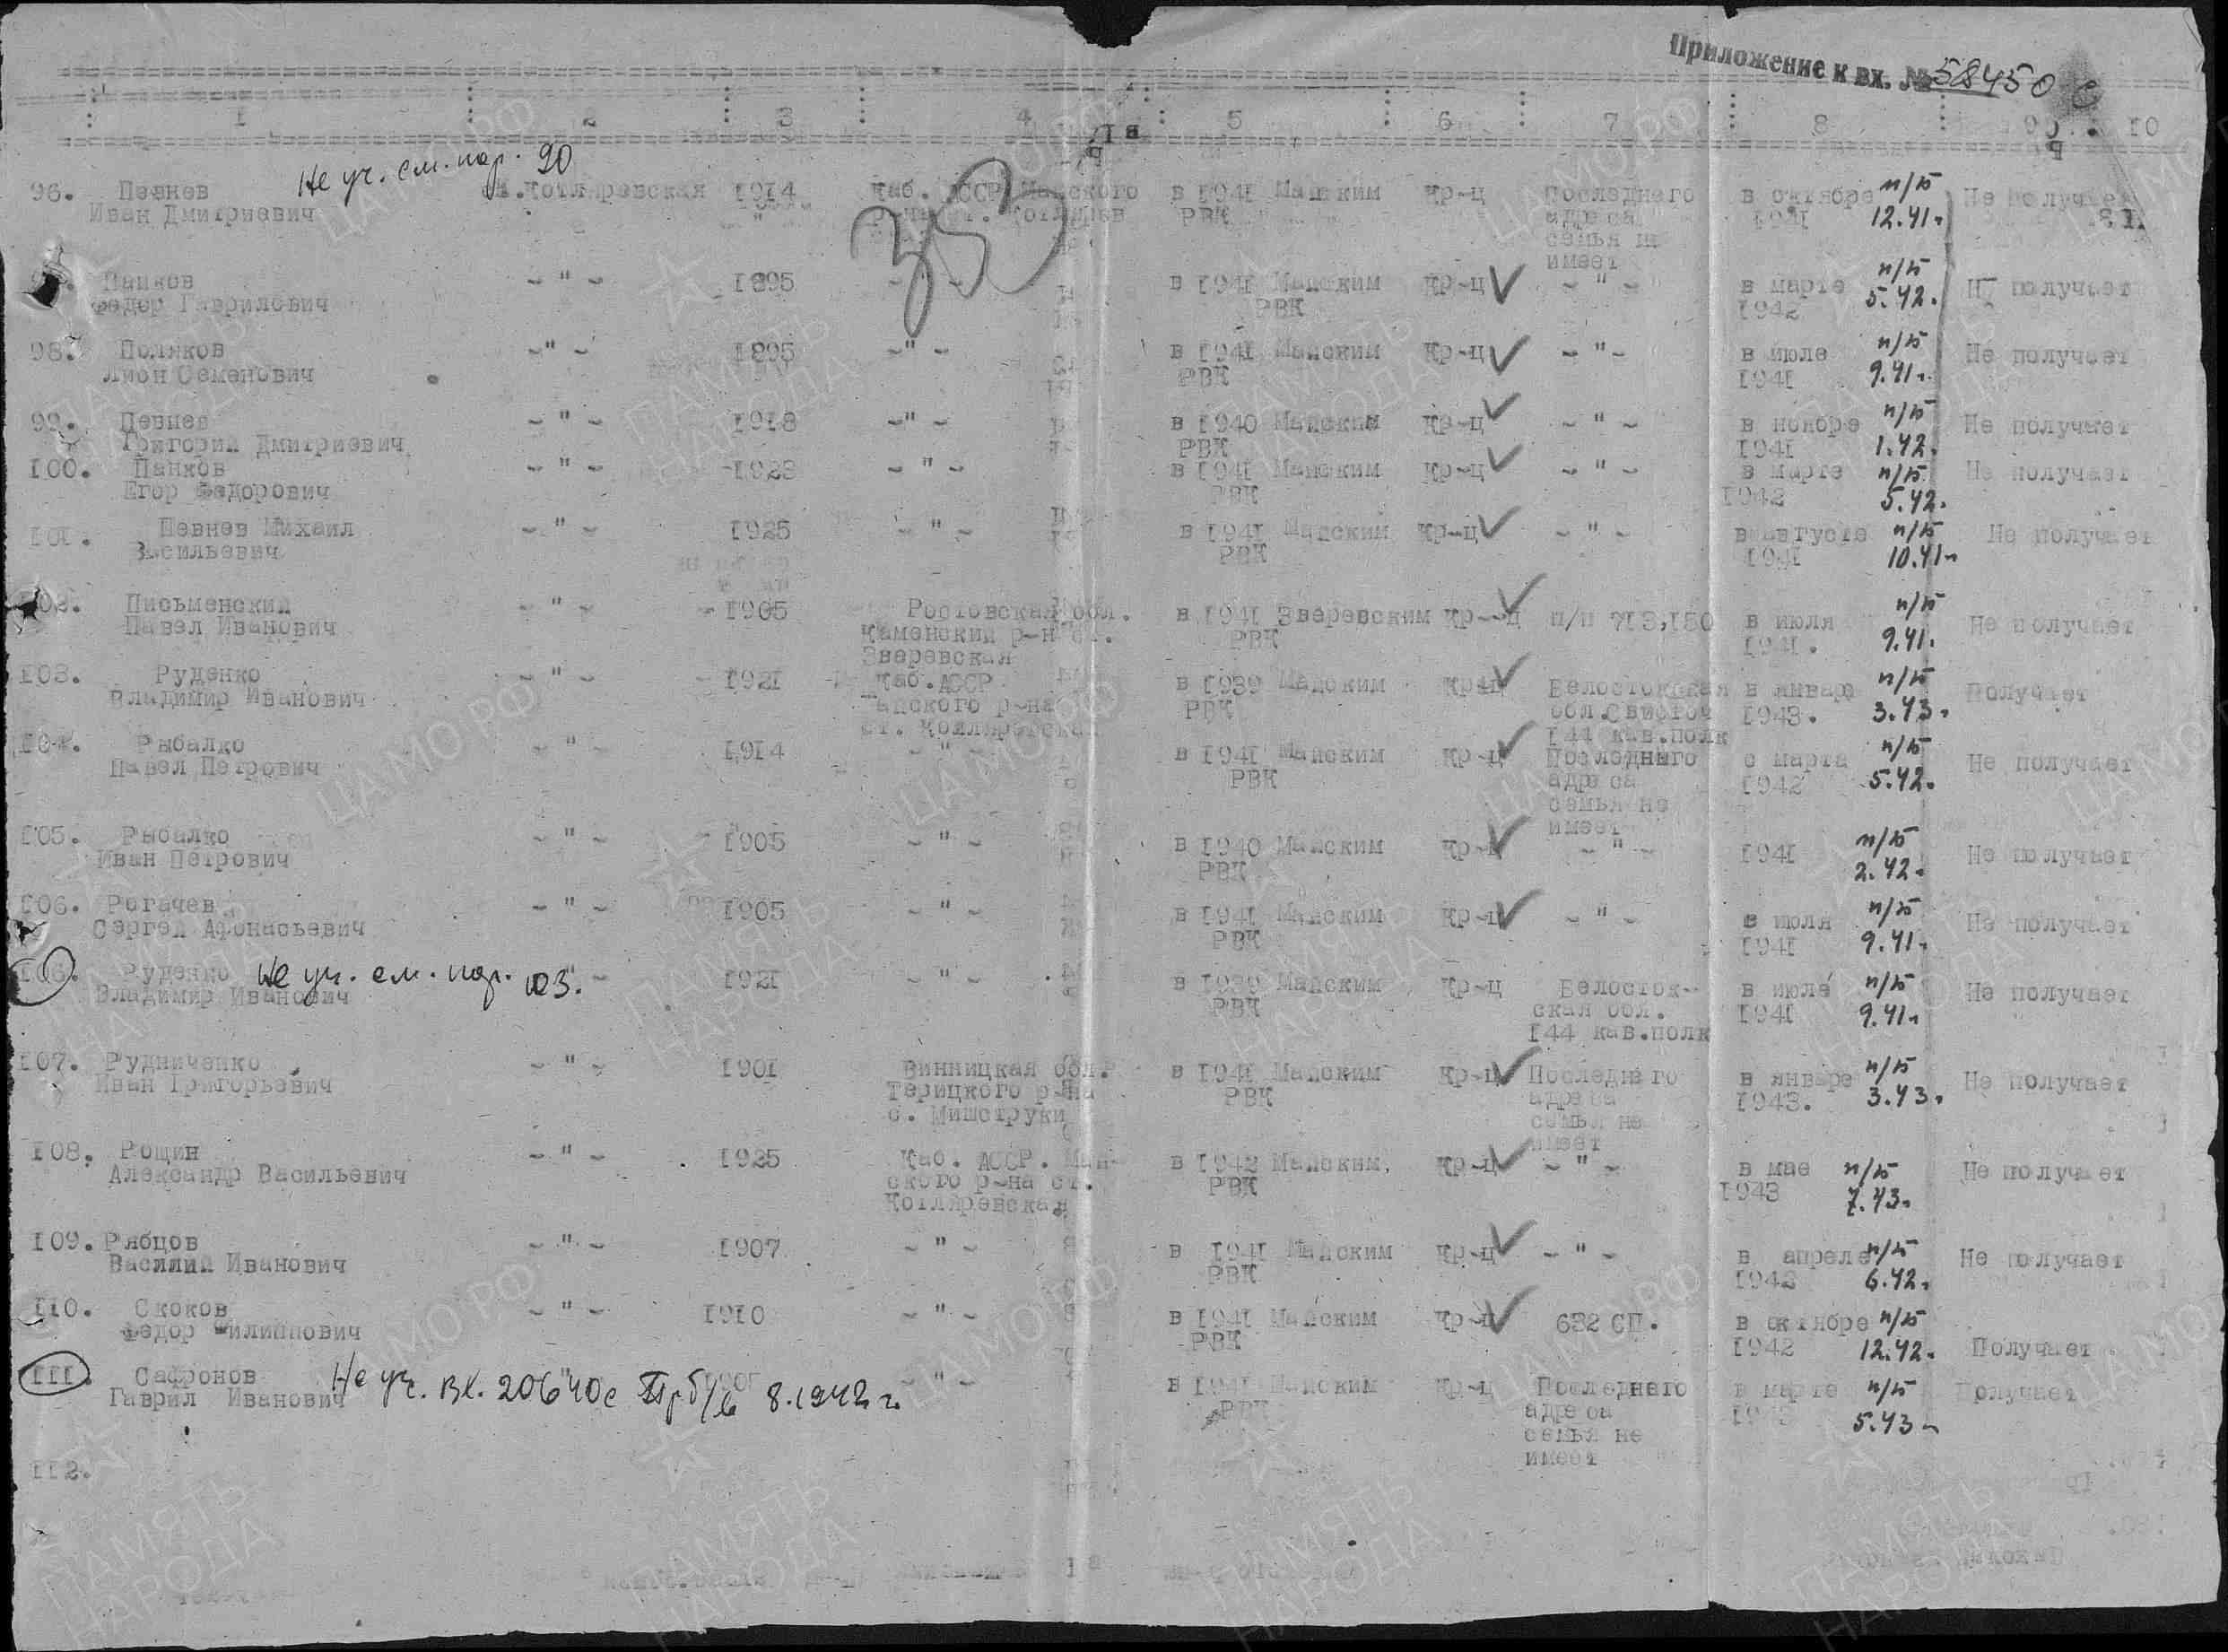 Приложение к вх. № 58450 с
1 2 3 4 5 6 7 8 9 10
353
96. Певнев Не уч. см. пор. 90 ст.Котляревская 1914 Каб. АССР Майского в 1941 Майским Кр-ц Последнего в октябре п/б Не получает
Иван Дмитриевич р-на ст. Котляров РВК адреса 1941 12.41г
семья не
имеет
Панков - " - 1895 - " - в 1941 Майским Кр-ц - " - в марте п/б Не получает
Федор Гаврилович РВК 1942 5.42.
98. Поляков - " - 1895 - " - в 1941 Майским Кр-ц - " - в июле п/б Не получает
Лион Семенович РВК 1941 9.41г.
99. Певнев - " - 1918 - " - в 1940 Майским Кр-ц - " - в ноябре п/б Не получает
Григорий Дмитриевич РВК 1941 1.42.
100. Панков - " - 1923 - " - в 1941 Майским Кр-ц - " - в марте п/б Не получает
Егор Федорович РВК 1942 5.42.
101. Певнев Михаил - " - 1925 - " - в 1941 Майским Кр-ц - " - в августе п/б Не получает
Васильевич РВК 1941 10.41г
102. Письменский - " - 1905 Ростовская обл. в 1941 Зверевским Кр-ц п/п 713,150 в июля п/б Не получает
Павел Иванович Каменский р-н ст. РВК 1941. 9.41.
Зверевская
103. Руденко - " - 1921 Каб.АССР в 1939 Майским Кр-ц Белостокская в январе п/б Получает
Владимир Иванович Майского р-на РВК обл.Свисточ 1943. 3.43.
ст. Котляревская 144 кав.полк
104. Рыбалко - " - 1914 - " - в 1941 Майским Кр-ц Последнего с марта п/б Не получает
Павел Петрович РВК адреса 1942 5.42.
семья не
имеет
105. Рыбалко - " - 1905 - " - в 1940 Майским Кр-ц - " - 1941 п/б Не получает
Иван Петрович РВК 2.42.
106. Рогачев - " - 1905 - " - в 1941 Майским Кр-ц - " - с июля п/б Не получает
Сергей Афонасьевич РВК 1941 9.41г
106. Руденко Не уч. см. пор. 103. - 1921 - " - в 1939 Майским Кр-ц Белосток- в июле п/б Не получает
Владимир Иванович РВК ская обл. 1941 9.41г
144 кав.полк
107. Рудниченко - " - 1901 Винницкая обл. в 1941 Майским Кр-ц Последнего в январе п/б Не получает
Иван Григорьевич Терицкого р-на РВК адреса 1943. 3.43.
с. Мишструки семья не
имеет
108. Рощин - " - 1925 Каб. АССР. Май- в 1942 Майским, Кр-ц - " - в мае п/б Не получает
Александр Васильевич ского р-на ст. РВК 1943 7.43.
Котляревская
109. Рябцов - " - 1907 - " - в 1941 Майским Кр-ц - " - в апреле п/б Не получает
Василий Иванович РВК 1942 6.42.
110. Скоков - " - 1910 - " - в 1941 Майским Кр-ц 632 СП. в октябре п/б
Федор Филиппович РВК 1942 12.42. Получает
111. Сафронов Не уч. Вх. 20640с 8.1942 г. - " - в 1941 Майским Кр-ц Последнего в марте п/б Получает
Гаврил Иванович РВК адреса 1943 5.43г
семья не
имеет
112.